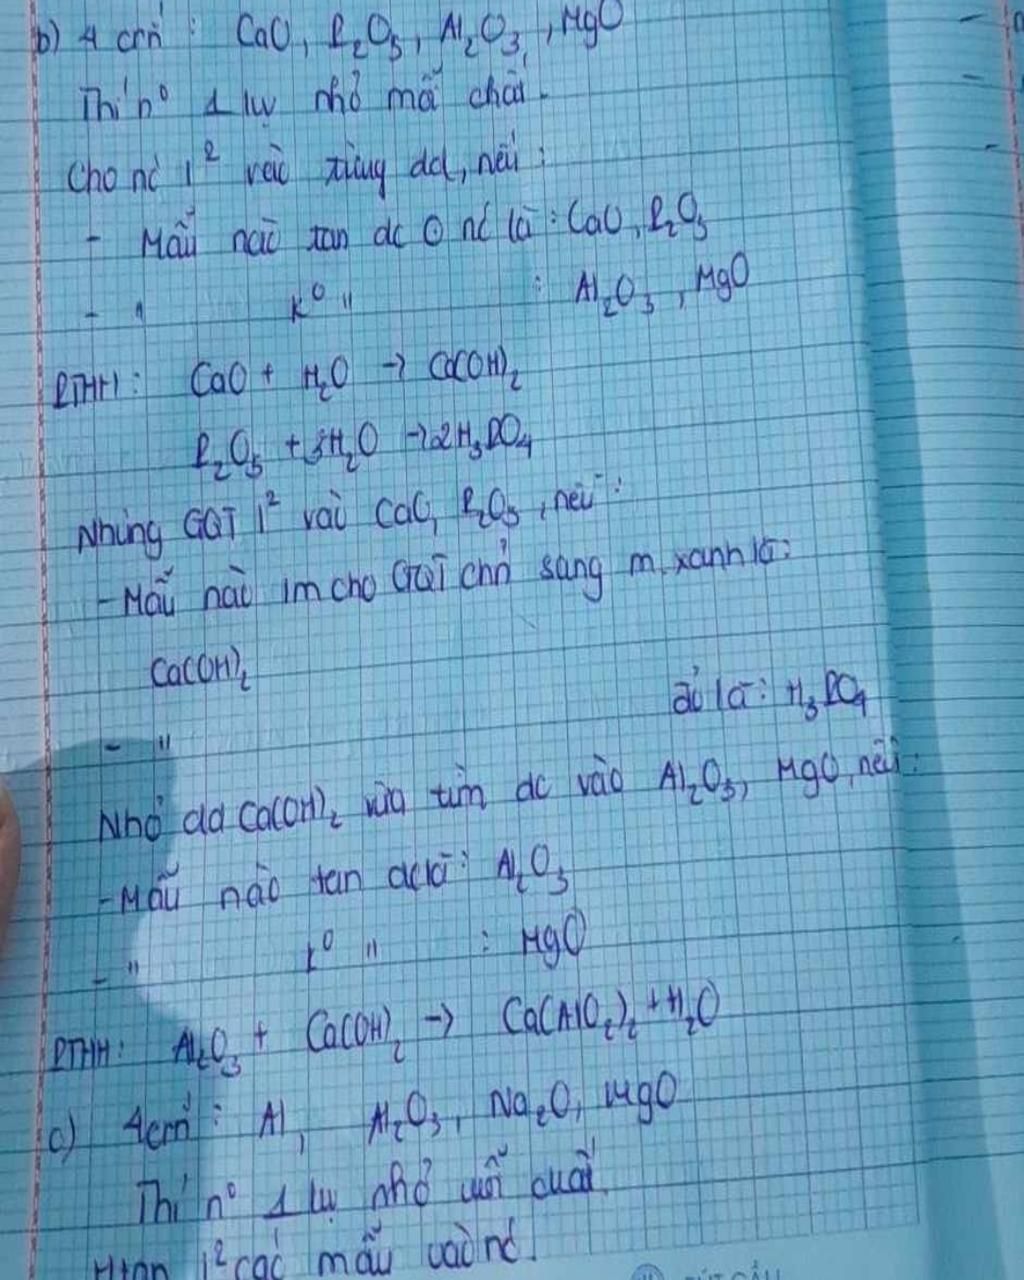 b) 4 crắn : CaO, P₂O₅, Al₂O₃, MgO
Thí n⁰ 1 lụ nhỏ mỗi chất.
Cho nc 1² vào từng dd, nếu :
- Mẫu nào tan dc O nc là : CaO, P₂O₅
- " k⁰ " : Al₂O₃, MgO
PTHH: CaO + H₂O → Ca(OH)₂
P₂O₅ + 3H₂O → 2H₃PO₄
Nhúng GQT 1² vào CaO, P₂O₅, nếu :
- Mẫu nào lm cho GQT chn sang m. xanh là:
Ca(OH)₂
- " đỏ là : H₃PO₄
Nhỏ dd Ca(OH)₂ vừa tìm dc vào Al₂O₃, MgO, nếu :
- Mẫu nào tan dc là : Al₂O₃
- " k⁰ " : MgO
PTHH: Al₂O₃ + Ca(OH)₂ → Ca(AlO₂)₂ + H₂O
c) 4 crắn : Al, Al₂O₃, Na₂O, MgO
Thí n⁰ 1 lụ nhỏ mỗi chất.
1² các mẫu vào nc.